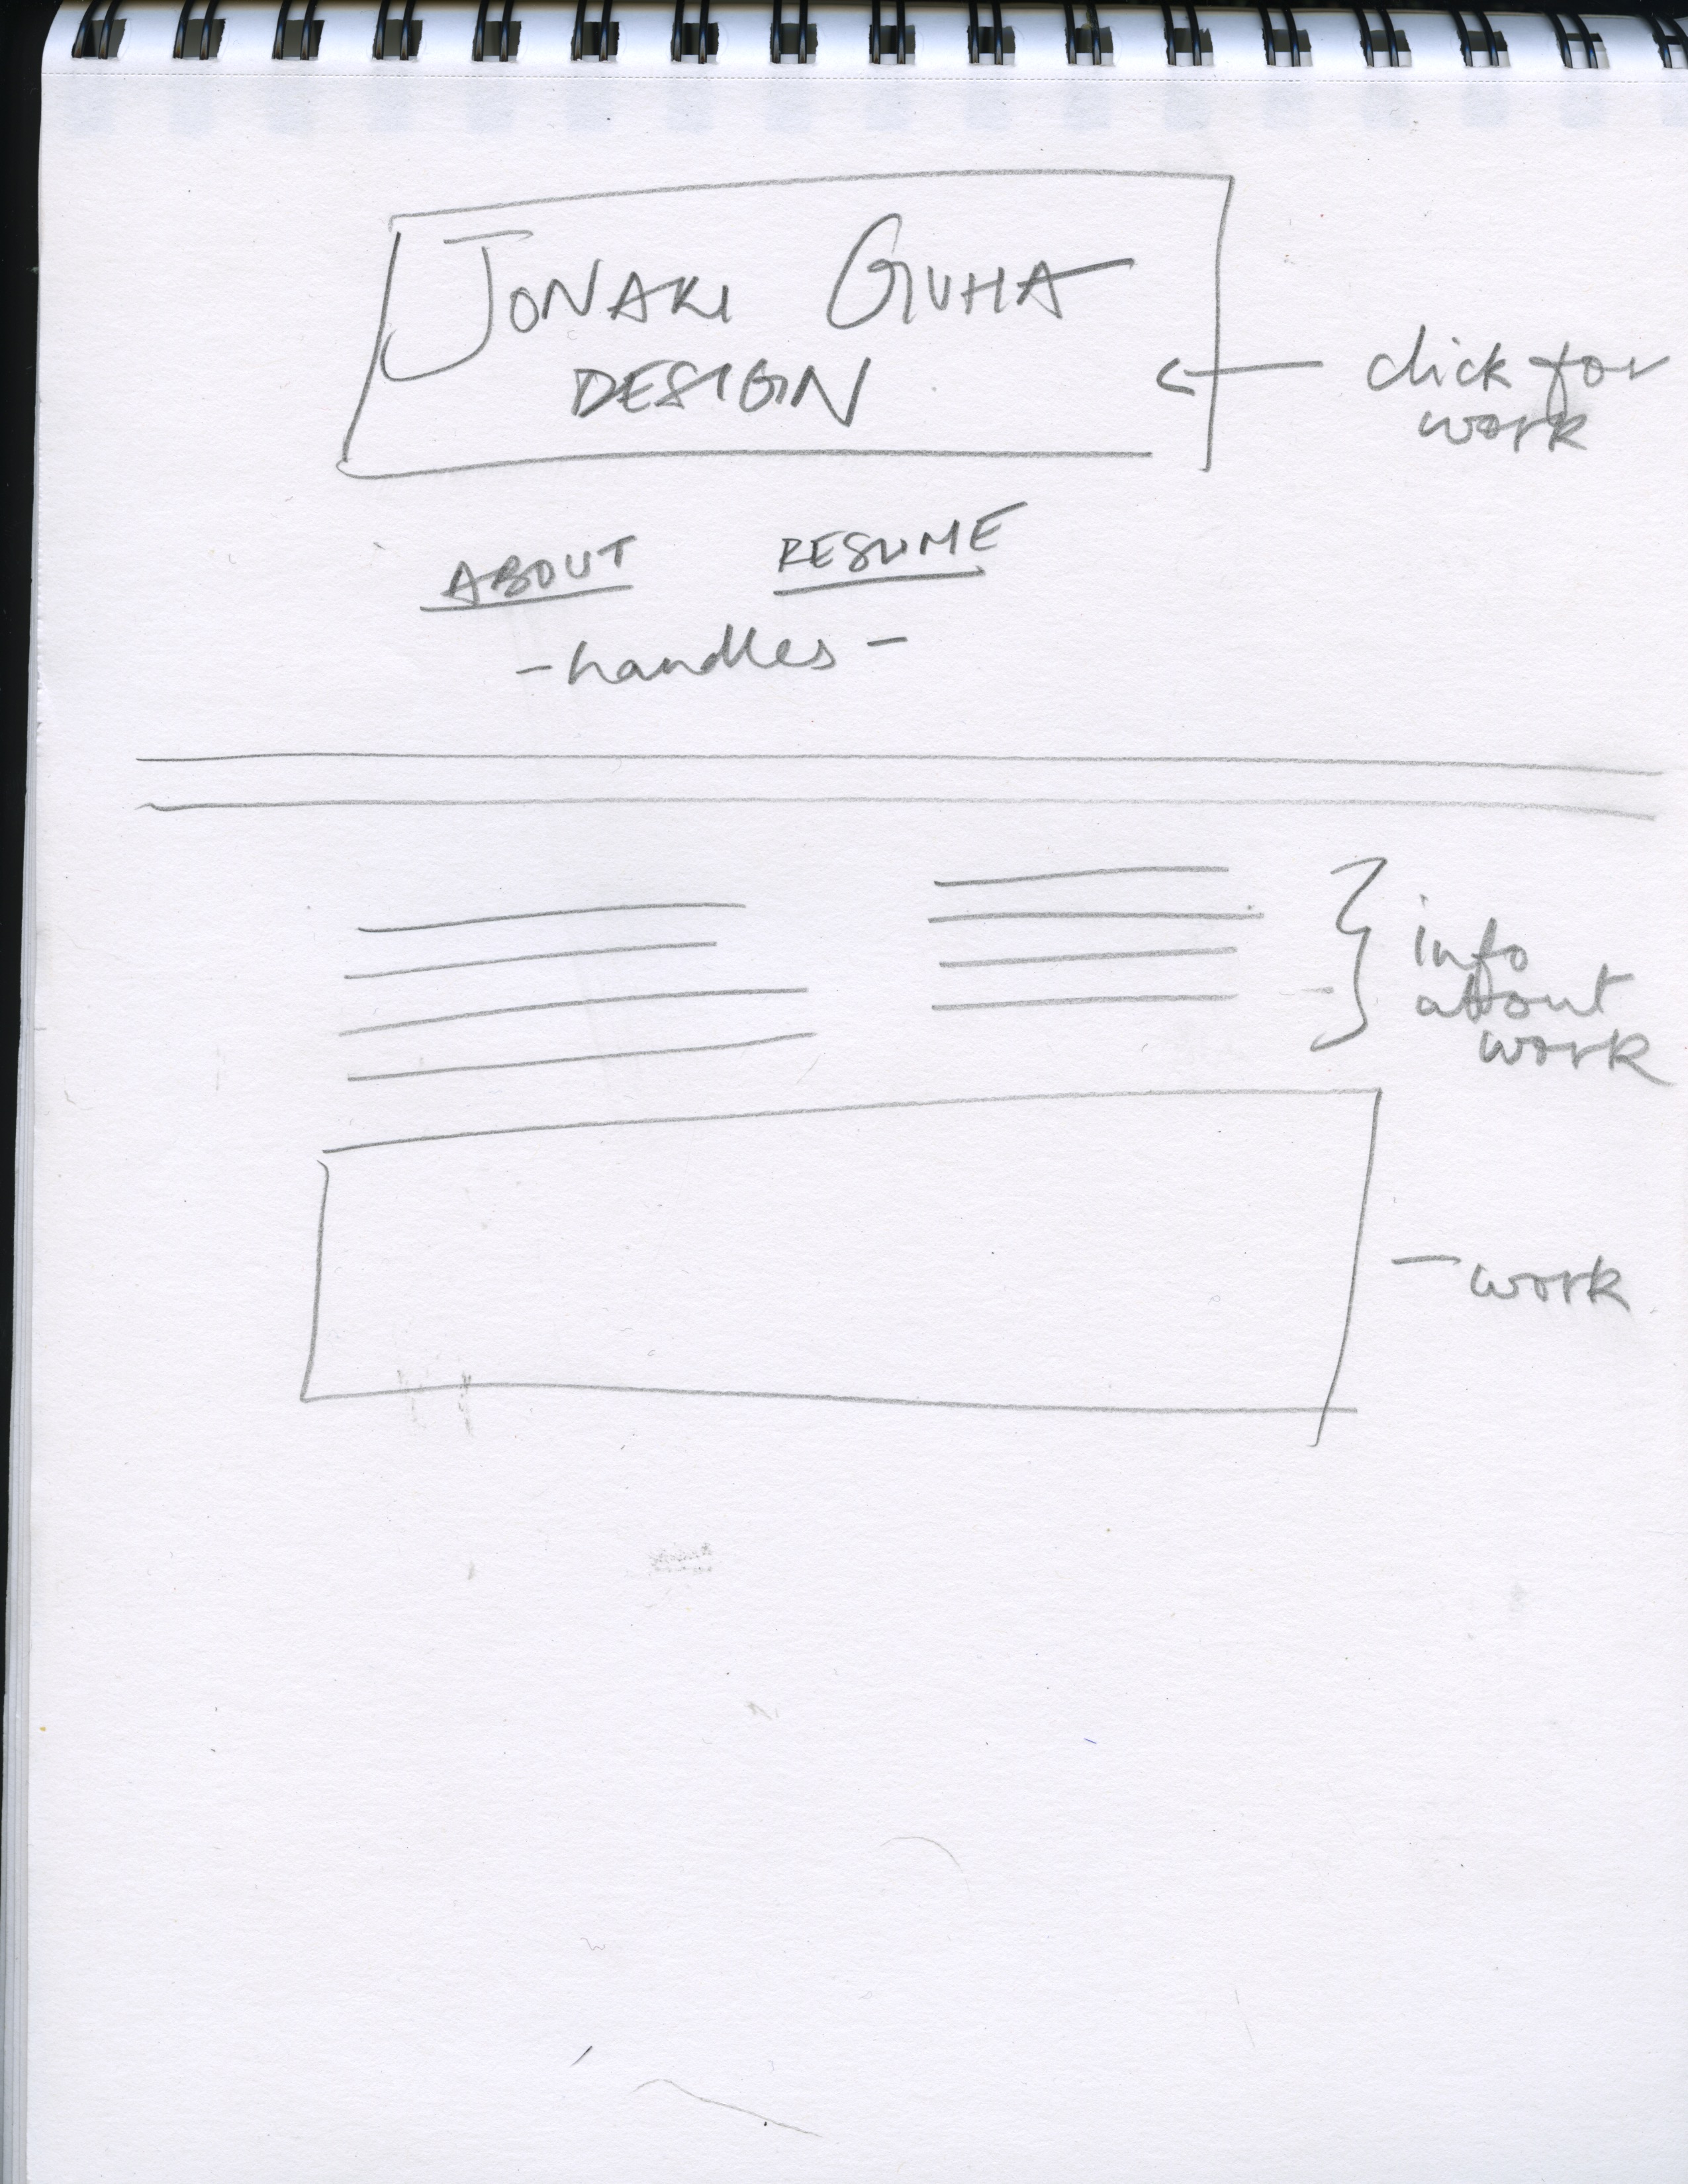 JONAKI GUHA
DESIGN
click for
work
ABOUT RESUME
- handles -
info
about
work
- work